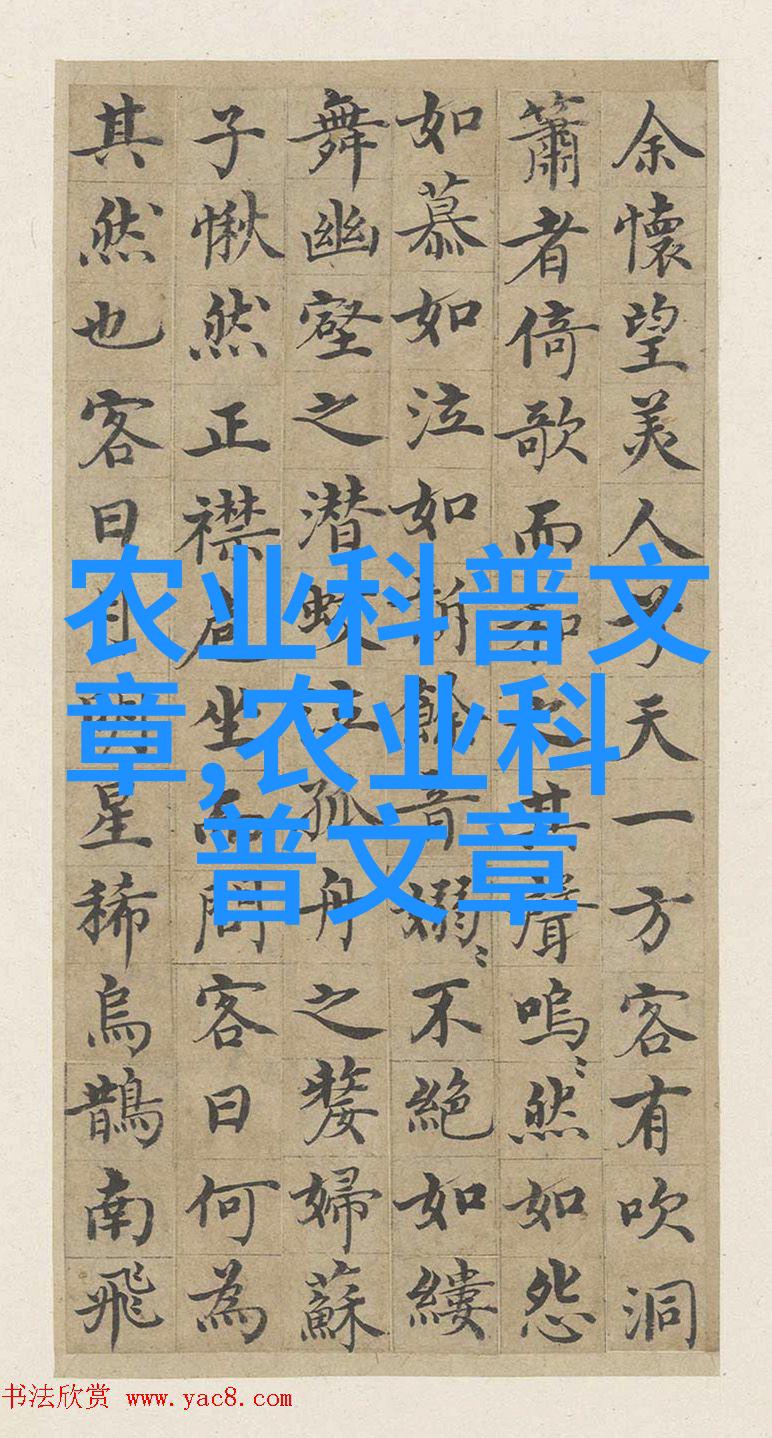 余懷望美人兮天一方客有吹洞
簫者倚歌而和之其聲嗚〻然如怨
如慕如泣如訴餘音嫋〻不絕如縷
舞幽壑之潛蛟泣孤舟之嫠婦蘇
子愀然正襟危坐而問客曰何為
其然也客曰月明星稀烏鵲南飛
农业科普文
章,农业科
普文章
书法欣赏 www.yac8.com